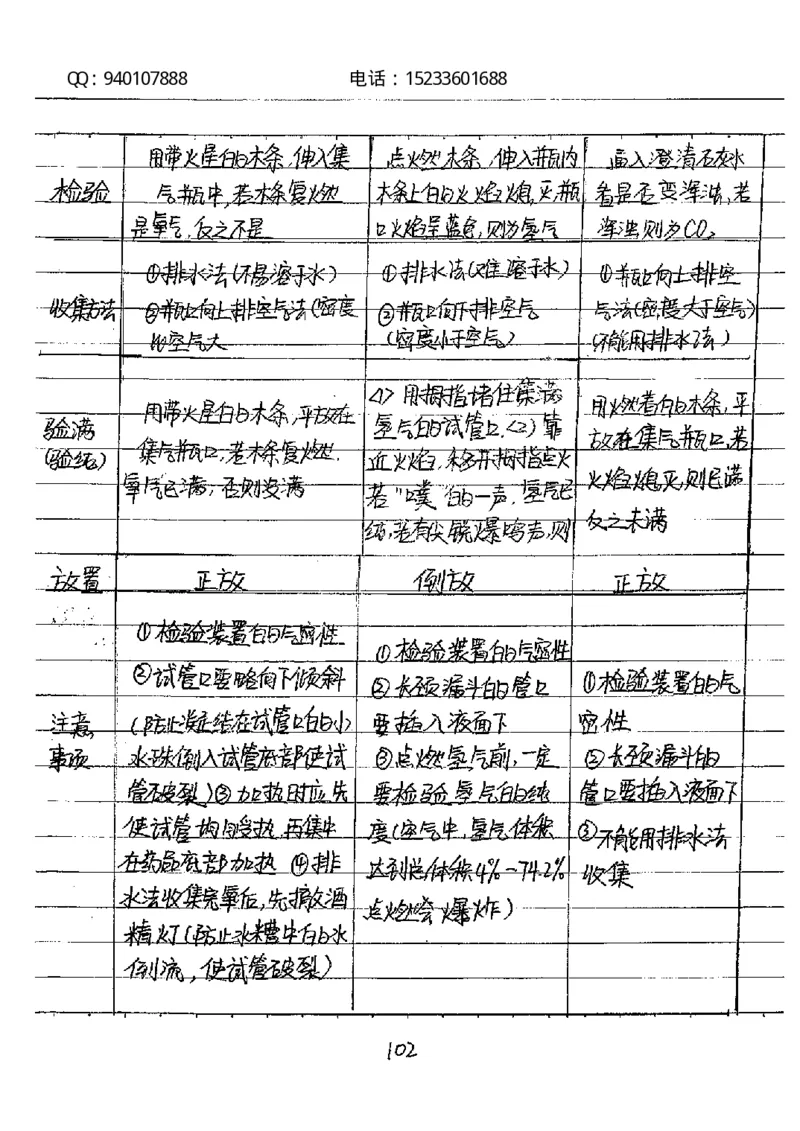 QQ：940107888 电话：15233601688
检验
用带火星的木条，伸入集
气瓶中，若木条复燃
是氧气，反之不是
点燃木条，伸入瓶内
木条上的火焰熄灭，瓶
口火焰呈蓝色，则为氢气
通入澄清石灰水
看是否变浑浊，若
浑浊则为CO₂
收集方法
①排水法（不易溶于水）
②瓶口向上排空气法（密度
比空气大
①排水法（难溶于水）
②瓶口向下排空气
（密度小于空气）
①瓶口向上排空
气法（密度大于空气）
（不能用排水法）
验满
（验纯）
用带火星的木条，平放在
集气瓶口，若木条复燃，
氧气已满，否则没满
<1>用拇指堵住集满
氢气的试管口，<2>靠
近火焰，移开拇指点火
若“噗”的一声，氢气已
纯，若有尖锐爆鸣声，则
用燃着的木条，平
放在集气瓶口，若
火焰熄灭，则已满
反之未满
放置
正放
倒放
正放
注意
事项
①检验装置的气密性
②试管口要略向下倾斜
（防止凝结在试管口的小
水珠倒入试管底部使试
管破裂）③加热时应先
使试管均匀受热，再集中
在药品底部加热 ④排
水法收集完氧后，先撤放酒
精灯（防止水糟中的水
倒流，使试管破裂）
①检验装置的气密性
②长颈漏斗的管口
要插入液面下
③点燃氢气前，一定
要检验氢气的纯
度（空气中，氢气体积
达到总体积4%~74.2%
点燃会爆炸）
①检验装置的气
密性
②长颈漏斗的
管口要插入液面下
③不能用排水法
收集
102